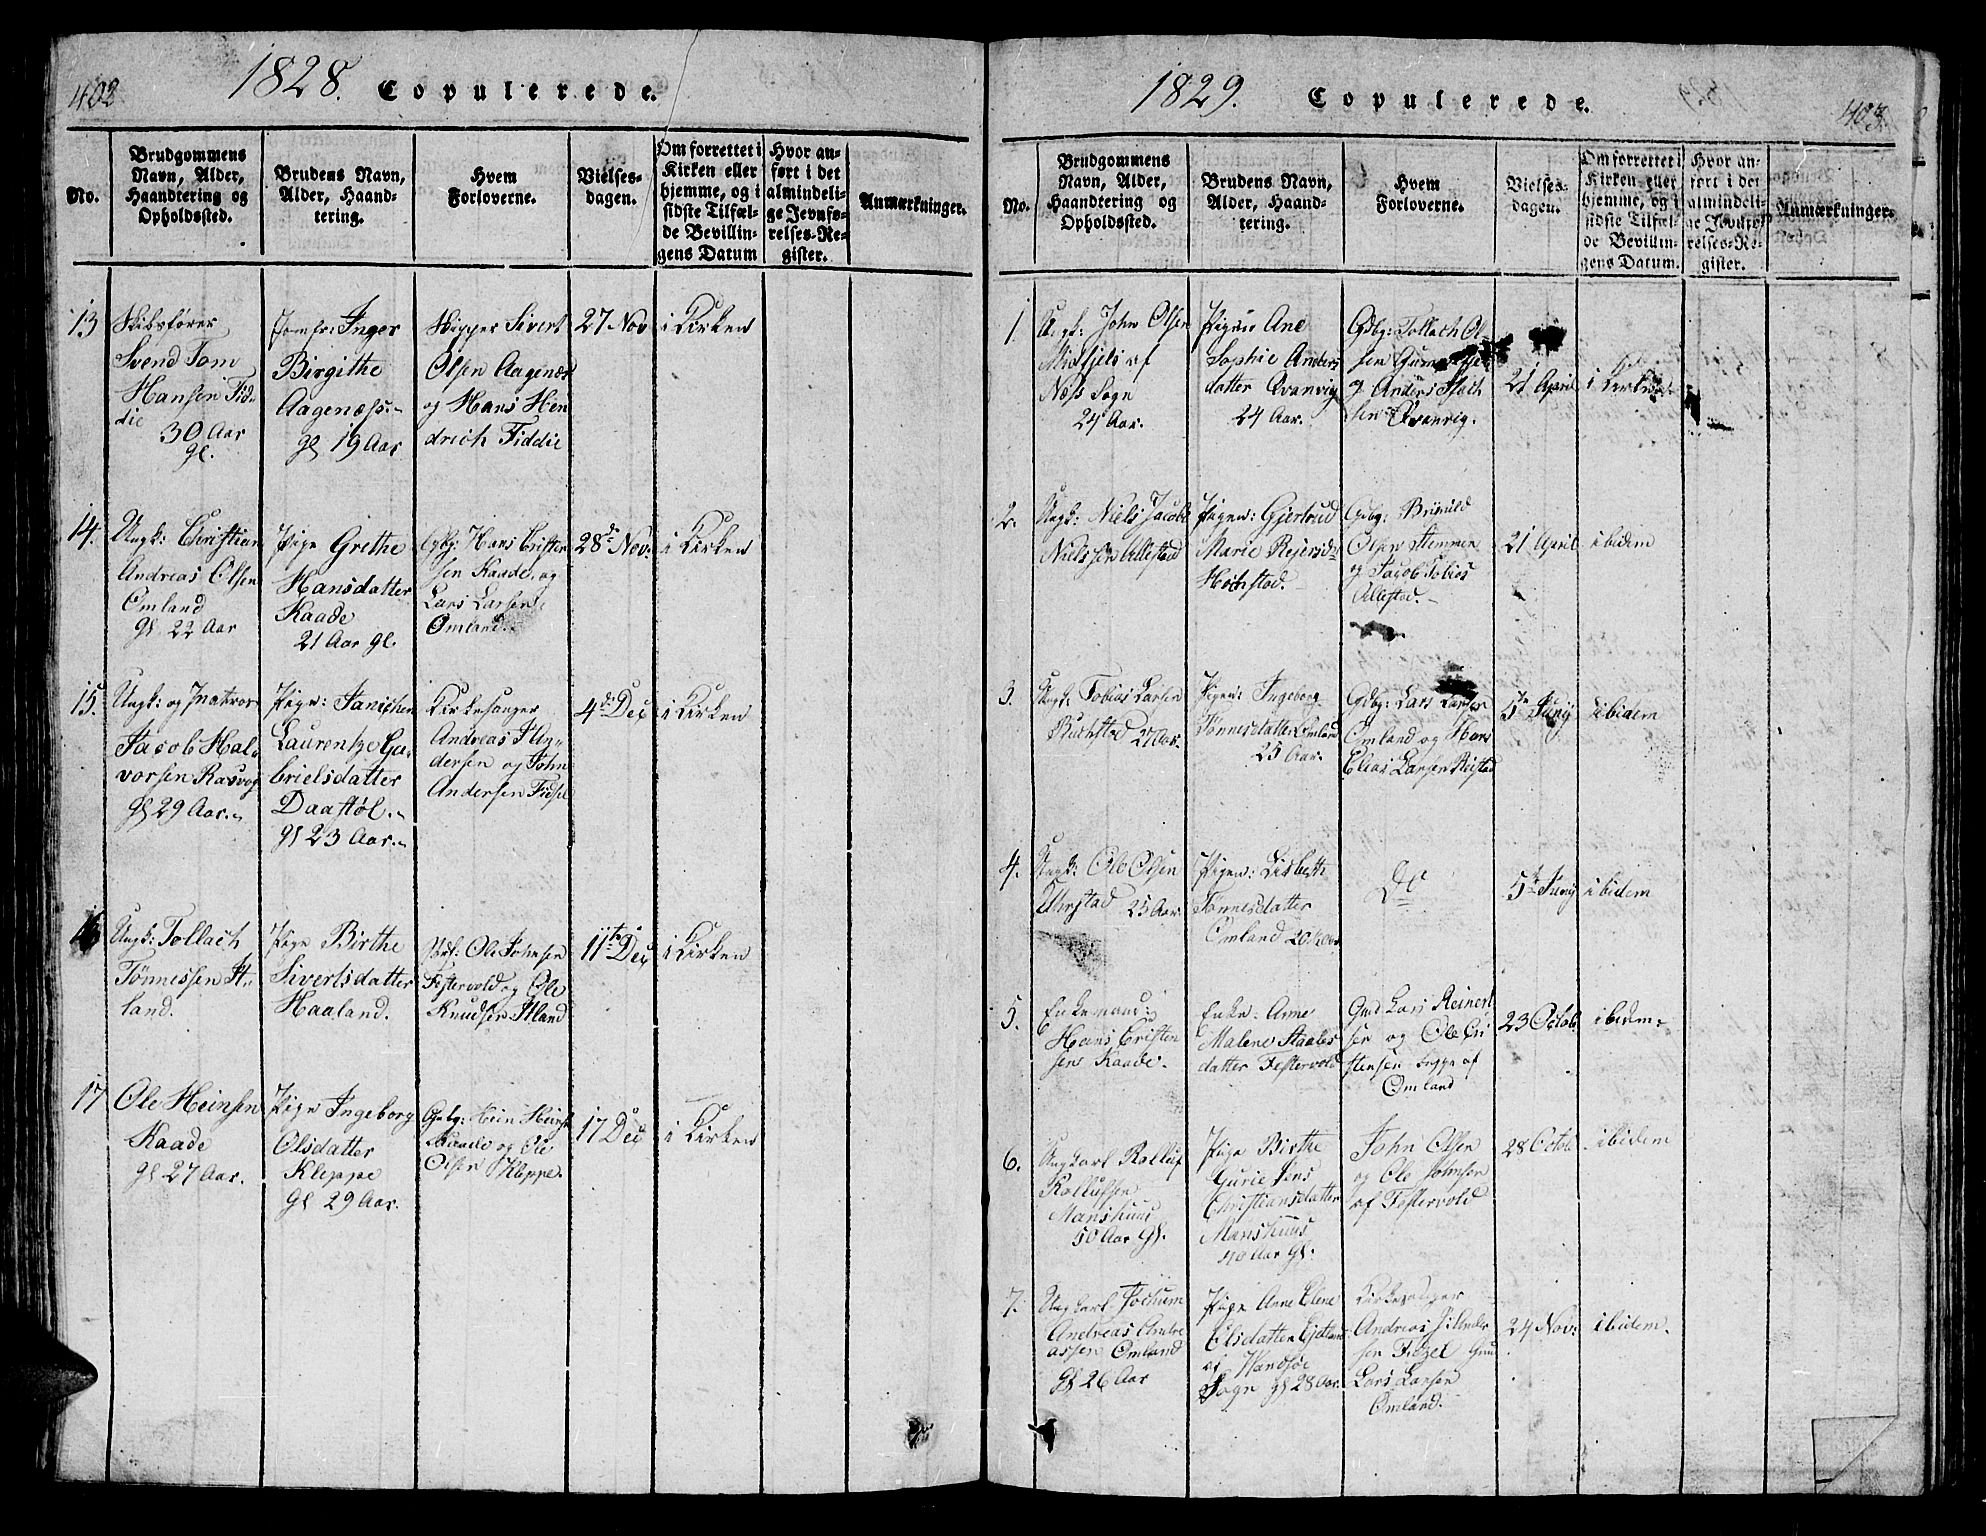 402
1828.
Copulerede.
No.
Brudgommens
Navn, Alder,
Haandtering og
Opholdssted.
Brudens Navn,
Alder, Haand-
tering.
Hvem
Forloverne.
Vielses-
dagen.
Om forrettet i
Kirken eller
hjemme, og i
sidste Tilfæl-
de Bevillin-
gens Datum
Hvor an-
ført i det
almindeli-
ge Jevnfø-
relses-Re-
gister.
Anmærkninger.
13
Skibsfører
Svend Tom
Hansen Fid-
die
30 Aar
gl.
Jomfr: Inger
Birgithe
Aagenæss.-
gl 19 Aar
Skipper Sivert
Olsen Aagenæs
og Hans Hen
drich Fiddie
27 Nov
i Kirken
14.
Ungk: Christian
Andreas Olsen
Omland
gl 22 Aar
Pige Grethe
Hansdatter
Kaade
21 Aar gl.
Gdbg: Hans Crister
sen Kaade, og
Lars Larsen
Omland.
28de Nov:
i Kirken
15.
Ungk: og
Jacob Hal-
vorsen Rasvog
gl 29 Aar.-
Pige: Janichen
Laurentze Ga-
brielsdatter
Daastøl.-
gl 23 Aar.-
Kirkesanger
Andreas J. An-
dersen og John
Andersen Fidsel
4de Dec
i Kirken
16
Ungk: Tollach
Tønnessen It-
land.
Pige Birthe
Sivertsdatter
Haaland.
Ole Johnsen
Festervold og Ole
Knudsen Itland
11te Dec
i Kirken
17
Ole Heinsen
Kaade
gl 27 Aar.
Pige Ingeborg
Olsdatter
Kleppe
gl 29 Aar.
Gdbg: Hein Heins
Kaade og Ole
Olsen Kleppe.
17 Dec
i Kirken
1829.
Copulerede.
403.
No.
Brudgommens
Navn, Alder,
Haandtering og
Opholdssted.
Brudens Navn,
Alder, Haand-
tering.
Hvem
Forloverne.
Vielses-
dagen.
Om forrettet i
Kirken eller
hjemme, og i
sidste Tilfæl-
de Bevillin-
gens Datum.
Hvor an-
ført i det
almindeli-
ge Jevnfø-
relses-Re-
gister.
Anmærkninger.
1
Ungk: John Olsen
af
Næss Sogn
24 Aar.
Pigen Ane
Sophie Anders
datter Qvanvig
24 Aar.
Gdbg: Tollach Ol-
sen
g Anders
sen Qvanvig.
21 April
i Kirken
2.
Ungk: Niels Jacob
Nielssen Allestad
Pigen: Gjertrud
Marie Rejersd
Hochstad.
Gdbg:
Olsen Stemmen
og Jacob Tobias
Allestad.
21 April
ibidem
3.
Ungk: Tobias Larsen
27 Aar.
Pigen: Ingeborg
Tønnesdatter Omland
25 Aar.
Gdbg: Lars Larsen
Omland og Hans
Elias Larsen
5te Junij
ibidem
4.
Ungk: Ole Olsen
25 Aar.
Pigen: Lisbeth
Tønnesdatter
Omland 20 Aar
Do
5te Junij
ibidem
5.
Enkemand:
Hans Cristen
sens Kaade.
Enke: Anne
Malene Staales
datter Festervold
Gmd Lars Reinert
sen og Ole Cri
stensen begge af
Omland
23 Octob.
ibidem.
6.
Ungkarl Rolluf
Rollufsen
Manshuus
50 Aar gl.
Pige Birthe
Gurie Jens
Christiansdatter
Manshuus
40 Aar gl.
John Olsen
og Ole Johnsen
af Festervold
28 Octob.
ibidem
7.
Ungkarl Jochum
Andreas Andre
assen Omland
gl 26 Aar
Pige Anne Elene
Elsdatter
af Vandsøe
Sogn gl 28 Aar.
Kirkesanger
Andreas J: Ander
sen Fidzel
Lars Larsen
Omland.
24 Nov:
ibidem.